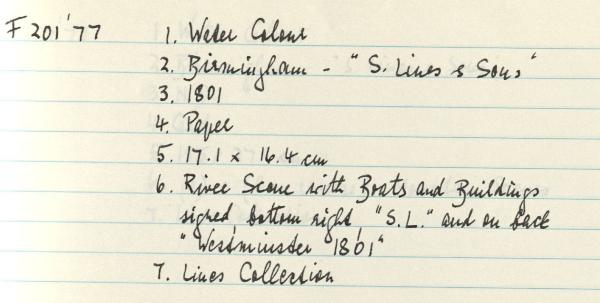 F 201'77 1. Water Colour
2. Birmingham - "S. Lines & Sons"
3. 1801
4. Paper
5. 17.1 x 16.4 cm
6. River Scene with Boats and Buildings
signed bottom right, "S.L." and on back
"Westminster 1801"
7. Lines Collection